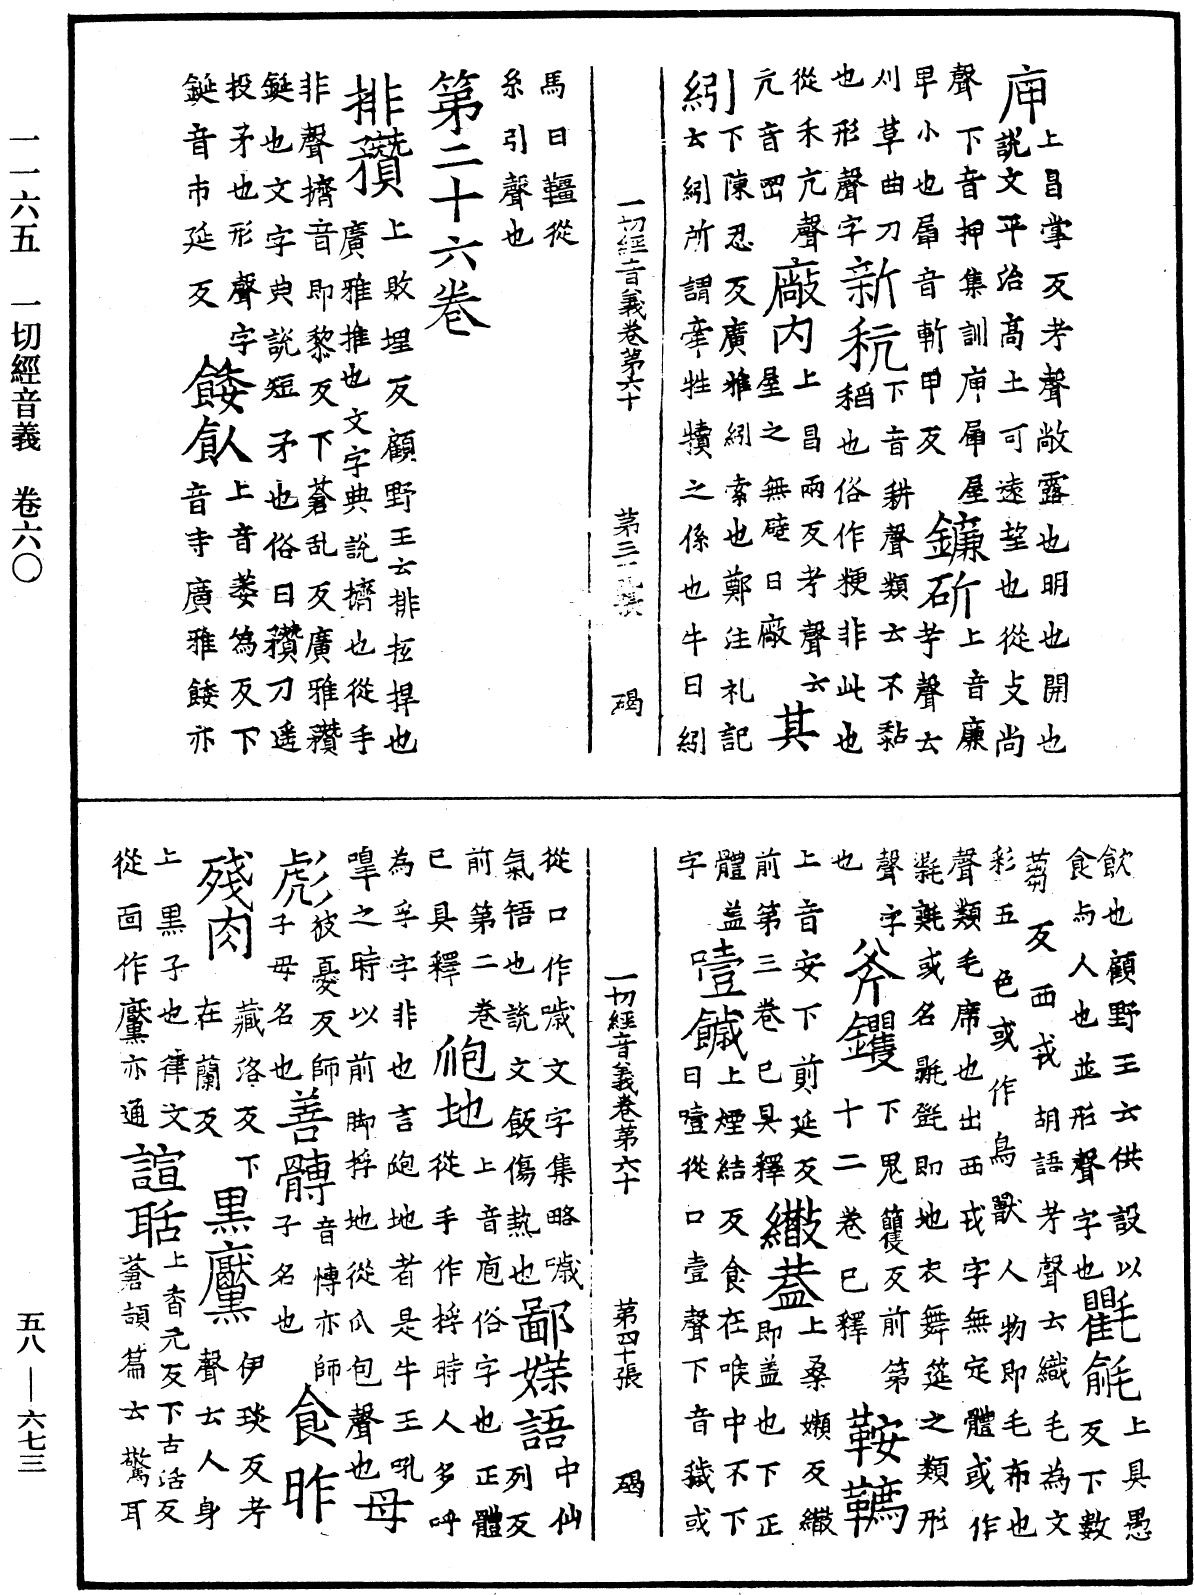 上昌掌反考聲敞露也明也開也
庘說文平治高土可遠望也從攴尚
聲下音押集訓庘屚屋鐮斫上音廉
早小也屚音斬甲反芋聲云
刈草曲刀新秔下音耕聲類云不黏
也形聲字稻也俗作粳非此也
從禾亢聲廠內上昌兩反考聲云其
亢音罡屋之無壁曰廠
紖下陳忍反廣雅紖索也鄭注礼記
云紖所謂牽牲犢之係也牛曰紖
一切經音義卷第六十 碣
馬曰韁從
糸引聲也
第二十六卷
排䂎上敗埋反顧野王云排拉捍也
廣雅推也文字典說擠也從手
非聲擠音即黎反下蒼乱反廣雅䂎
鋋也文字典說短矛也俗曰䂎刀遥
投矛也形聲字餧飤上音萎為反下
鋋音市延反音寺廣雅餧亦
飲也顧野王云供設以氍毹上具愚
食与人也並形聲字也反下數
蒭反西戎胡語考聲云織毛為文
彩五色或作鳥獸人物即毛布也
聲類毛席也出西戎字無定體或作
或名即地衣舞筵之類形
聲字斧钁下俱籰反前第
也十二卷已釋鞍韉
上音安下前延反繖蓋上桑嬾反繖
前第三卷已具釋即盖也下正
體盖噎𩜁上煙結反食在喉中不下
字曰噎從口壹聲下音䆅或
一切經音義卷第六十 第四十張 碣
從口作噦文字集略噦鄙媟語中仙
氣牾也說文飯傷熱也列反
前第二卷㿺地上音庖俗字也正體
已具釋從手作捊時人多呼
為孚字非也言跑地者是牛王吼
嘷之時以前脚捊地從爪包聲也母
彪彼憂反師善𩪛音慱亦師食昨
子母名也子名也
殘肉藏洛反下黑黶伊琰反考
在蘭反聲云人身
上黑子也律文諠聒上香元反下古活反
從面作黶亦通蒼頡篇云驚耳
一一六五 一切經音義 卷六〇
五八—六七三